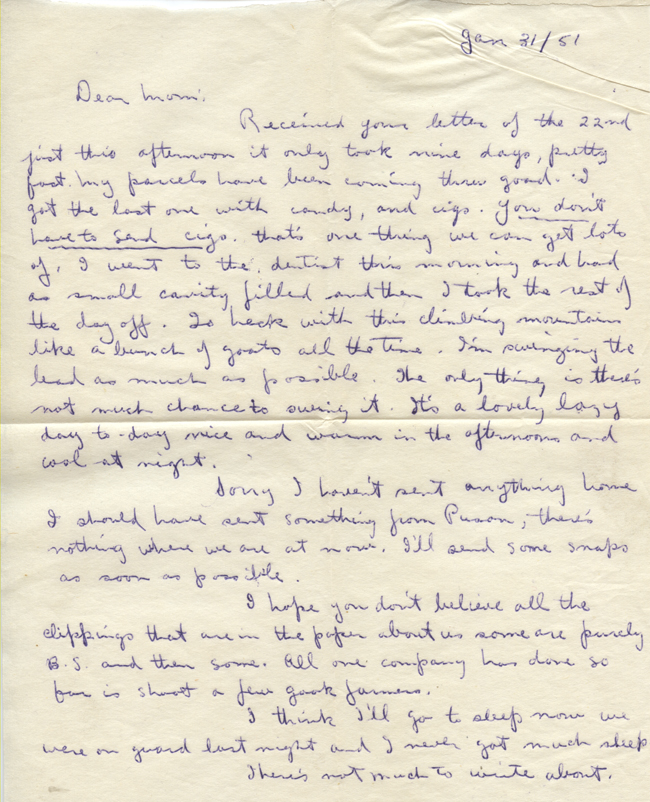 Jan 31/51
Dear Mom.
Received your letter of the 22nd
just this afternoon it only took nine days, pretty
fast. My parcels have been coming threw good. I
got the last one with candy, and cigs. You don't
have to send cigs. that's one thing we can get lots
of, I went to the dentist this morning and had
as small cavity filled and then I took the rest of
the day off. To heck with this climbing mountains
like a bunch of goats all the time. I'm swinging the
lead as much as possible. The only thing is there's
not much chance to swing it. It's a lovely lazy
day to-day nice and warm in the afternoons and
cool at night.
Sorry I haven't sent anything home
I should have sent something from Pusan, there's
nothing where we are at now. I'll send some snaps
as soon as possible.
I hope you don't believe all the
clippings that are in the paper about us some are purely
B.S. and then some. All one company has done so
far is shoot a few gook farmers.
I think I'll go to sleep now we
were on guard last night and I never got much sleep
There's not much to write about.